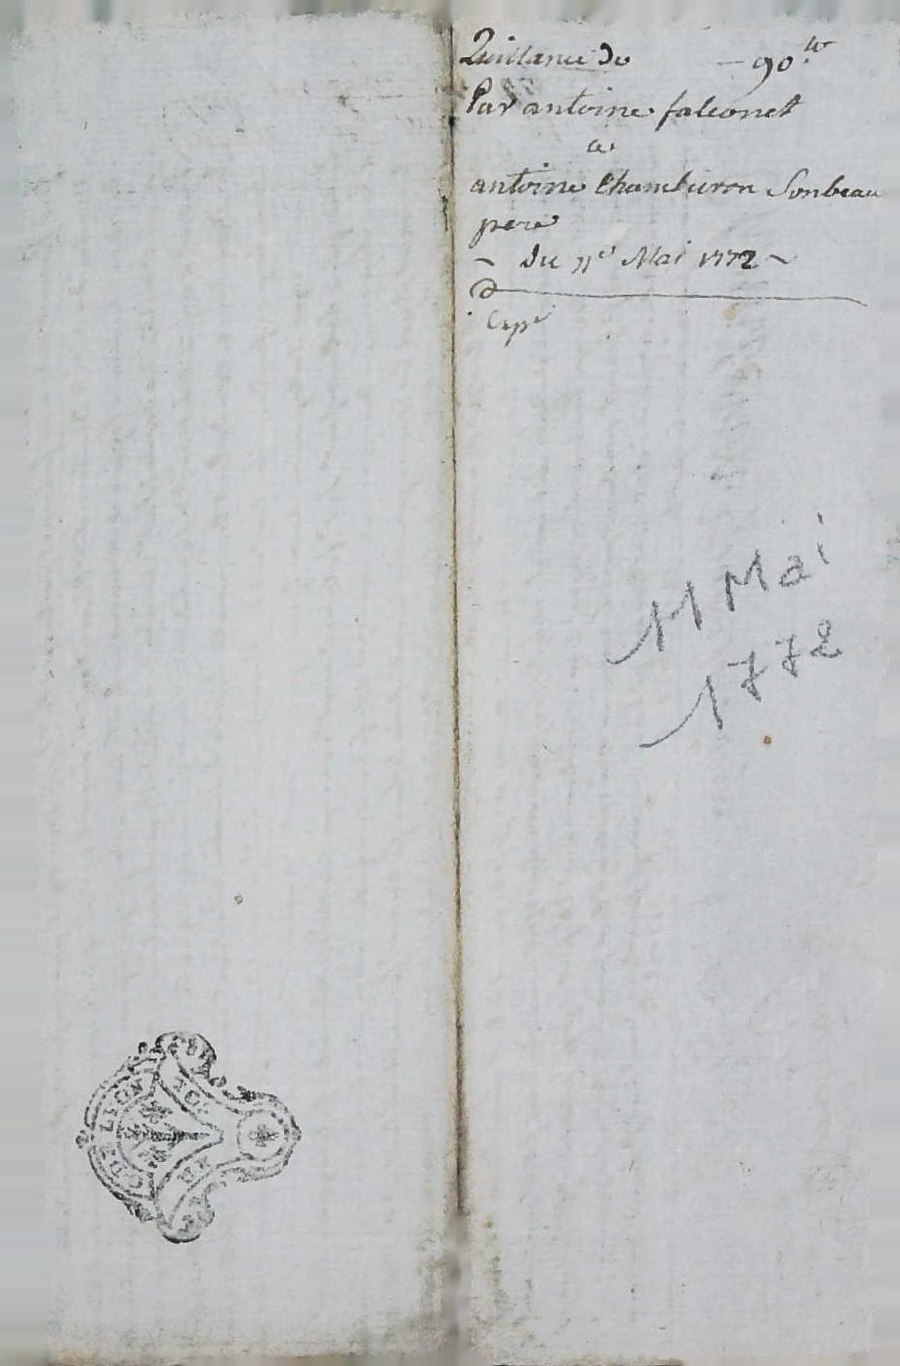 Quittance de — 90 ₶
Par antoine falconet
a
antoine Chambeiron Sonbeau
pere
~ Du 11e Mai 1772 ~
Expn
11 Mai
1772
DE LYON